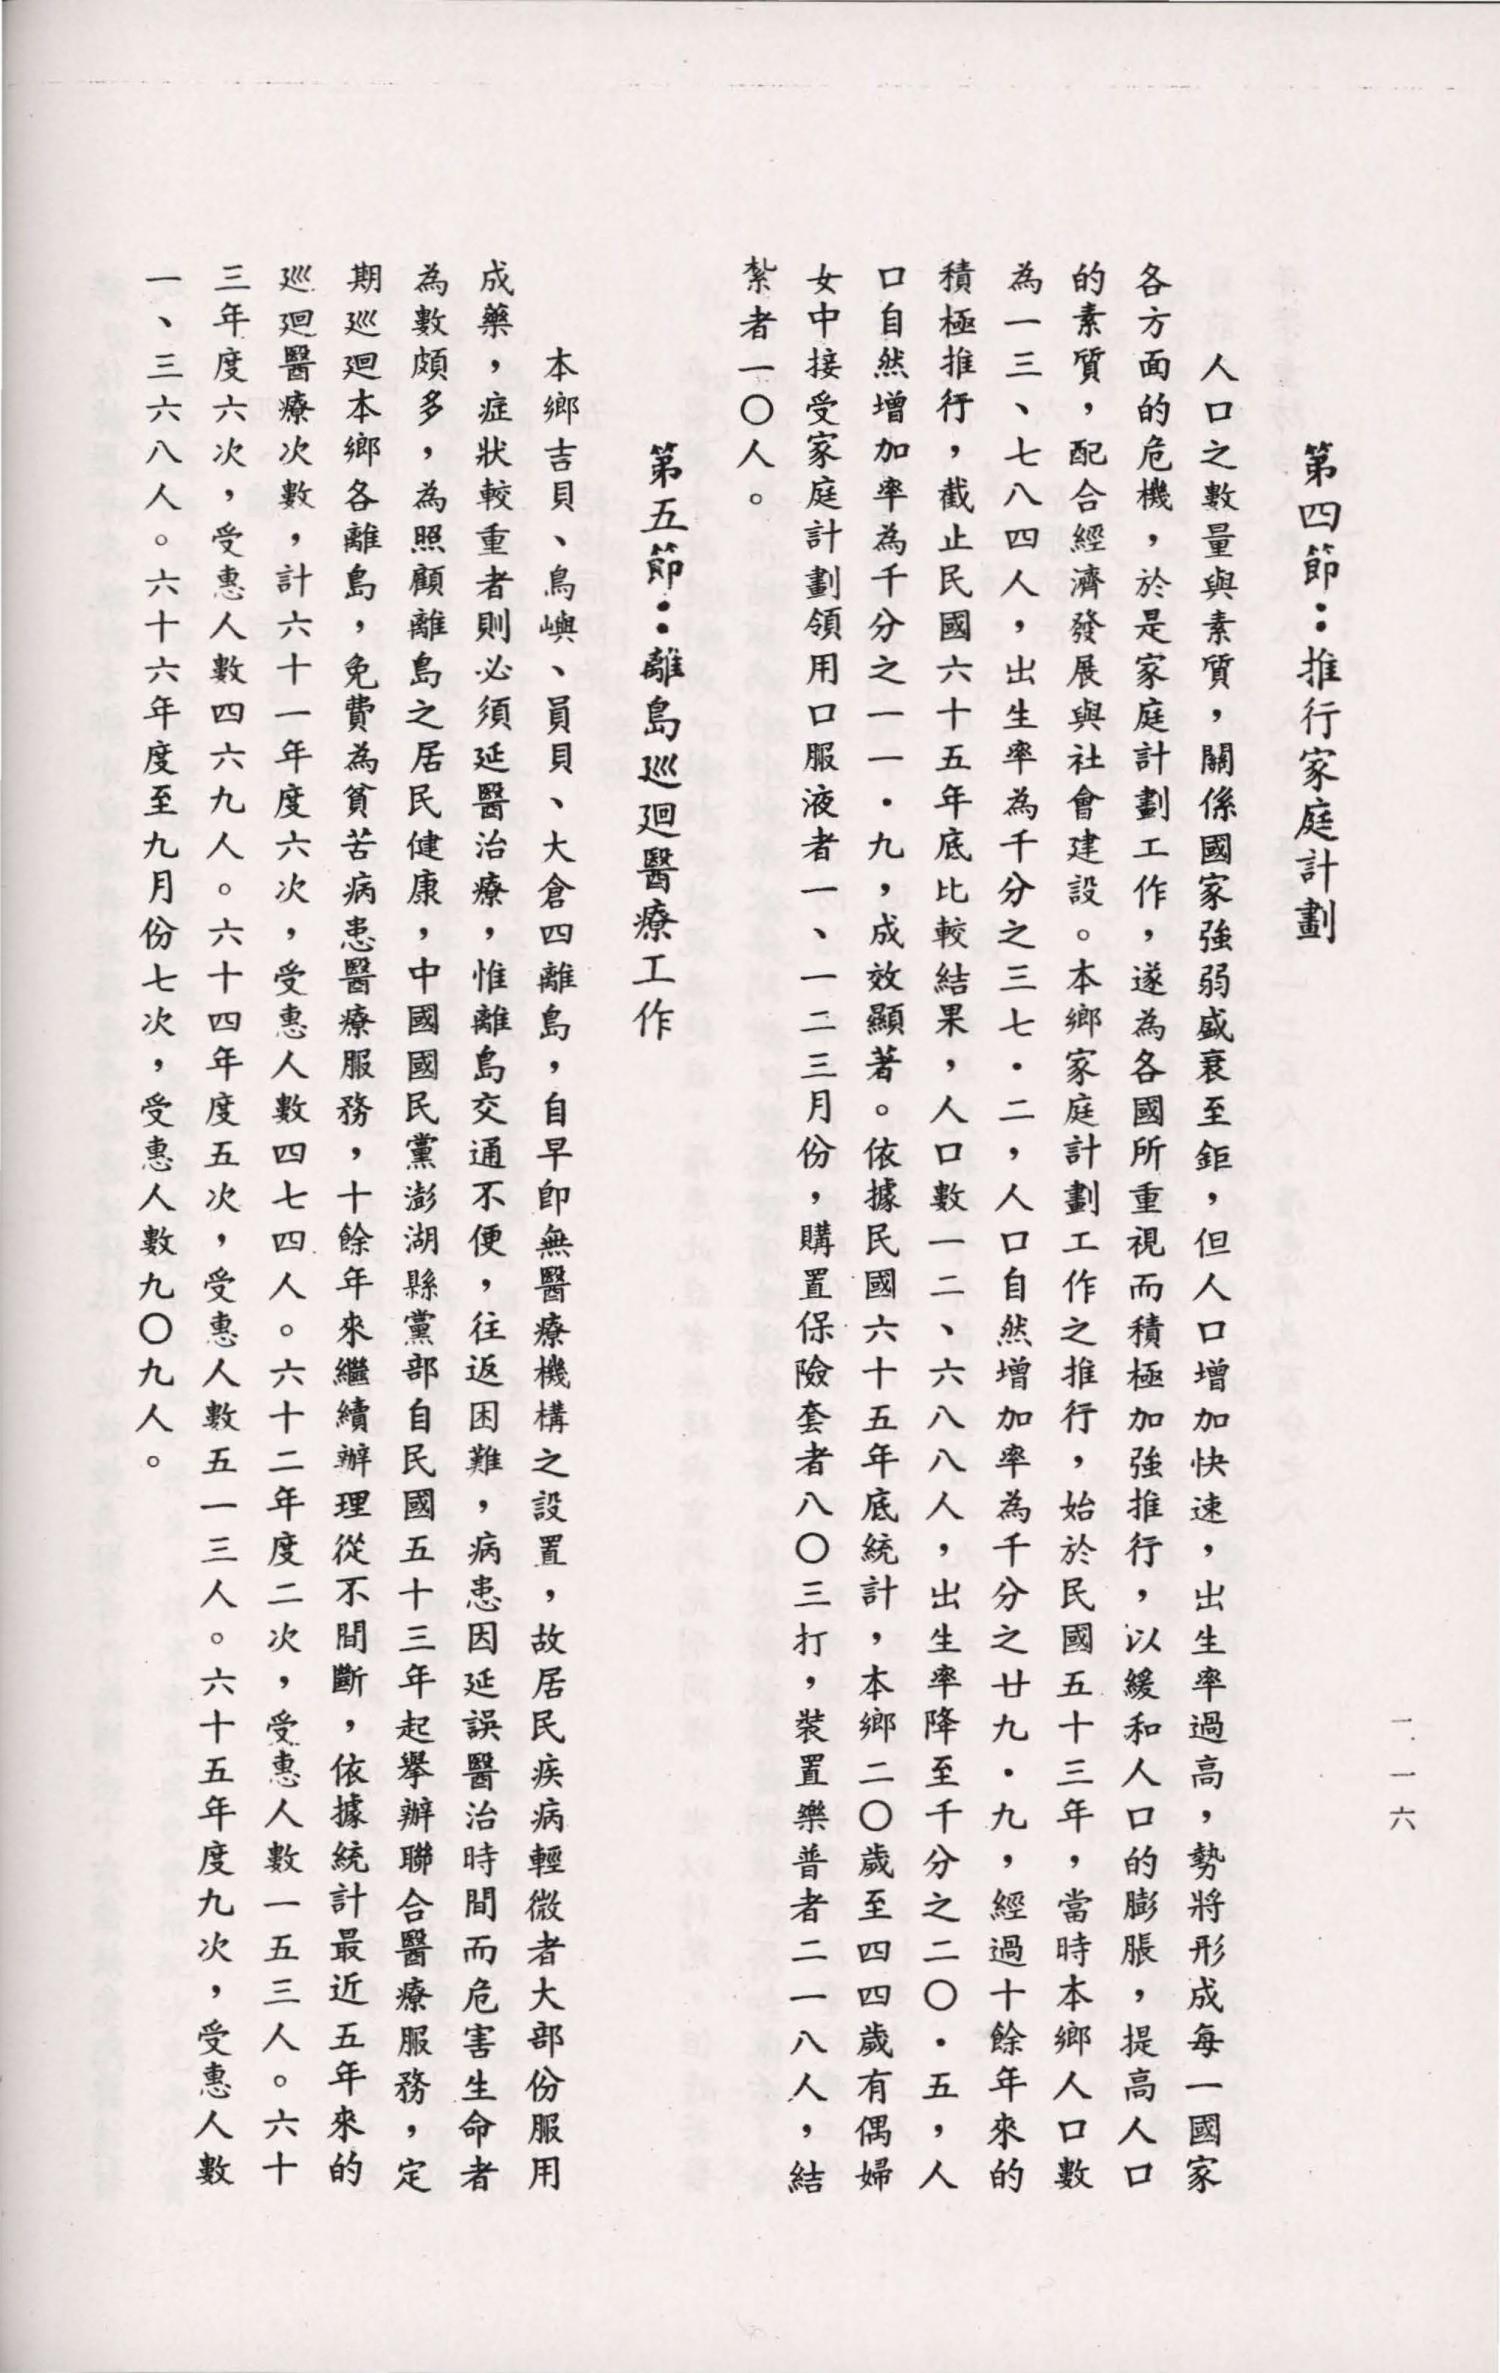 一一六
第四節：推行家庭計劃
人口之數量與素質，關係國家強弱盛衰至鉅，但人口增加快速，出生率過高，勢將形成每一國家
各方面的危機，於是家庭計劃工作，遂為各國所重視而積極加強推行，以緩和人口的膨脹，提高人口
的素質，配合經濟發展與社會建設。本鄉家庭計劃工作之推行，始於民國五十三年，當時本鄉人口數
為一三、七八四人，出生率為千分之三七．二，人口自然增加率為千分之廿九．九，經過十餘年來的
積極推行，截止民國六十五年底比較結果，人口數一二、六八八人，出生率降至千分之二〇．五，人
口自然增加率為千分之一一．九，成效顯著。依據民國六十五年底統計，本鄉二〇歲至四四歲有偶婦
女中接受家庭計劃領用口服液者一、一二三月份，購置保險套者八〇三打，裝置樂普者二一八人，結
紮者一〇人。
第五節：離島巡迴醫療工作
本鄉吉貝、鳥嶼、員貝、大倉四離島，自早即無醫療機構之設置，故居民疾病輕微者大部份服用
成藥，症狀較重者則必須延醫治療，惟離島交通不便，往返困難，病患因延誤醫治時間而危害生命者
為數頗多，為照顧離島之居民健康，中國國民黨澎湖縣黨部自民國五十三年起舉辦聯合醫療服務，定
期巡迴本鄉各離島，免費為貧苦病患醫療服務，十餘年來繼續辦理從不間斷，依據統計最近五年來的
巡迴醫療次數，計六十一年度六次，受惠人數四七四人。六十二年度二次，受惠人數一五三人。六十
三年度六次，受惠人數四六九人。六十四年度五次，受惠人數五一三人。六十五年度九次，受惠人數
一、三六八人。六十六年度至九月份七次，受惠人數九〇九人。